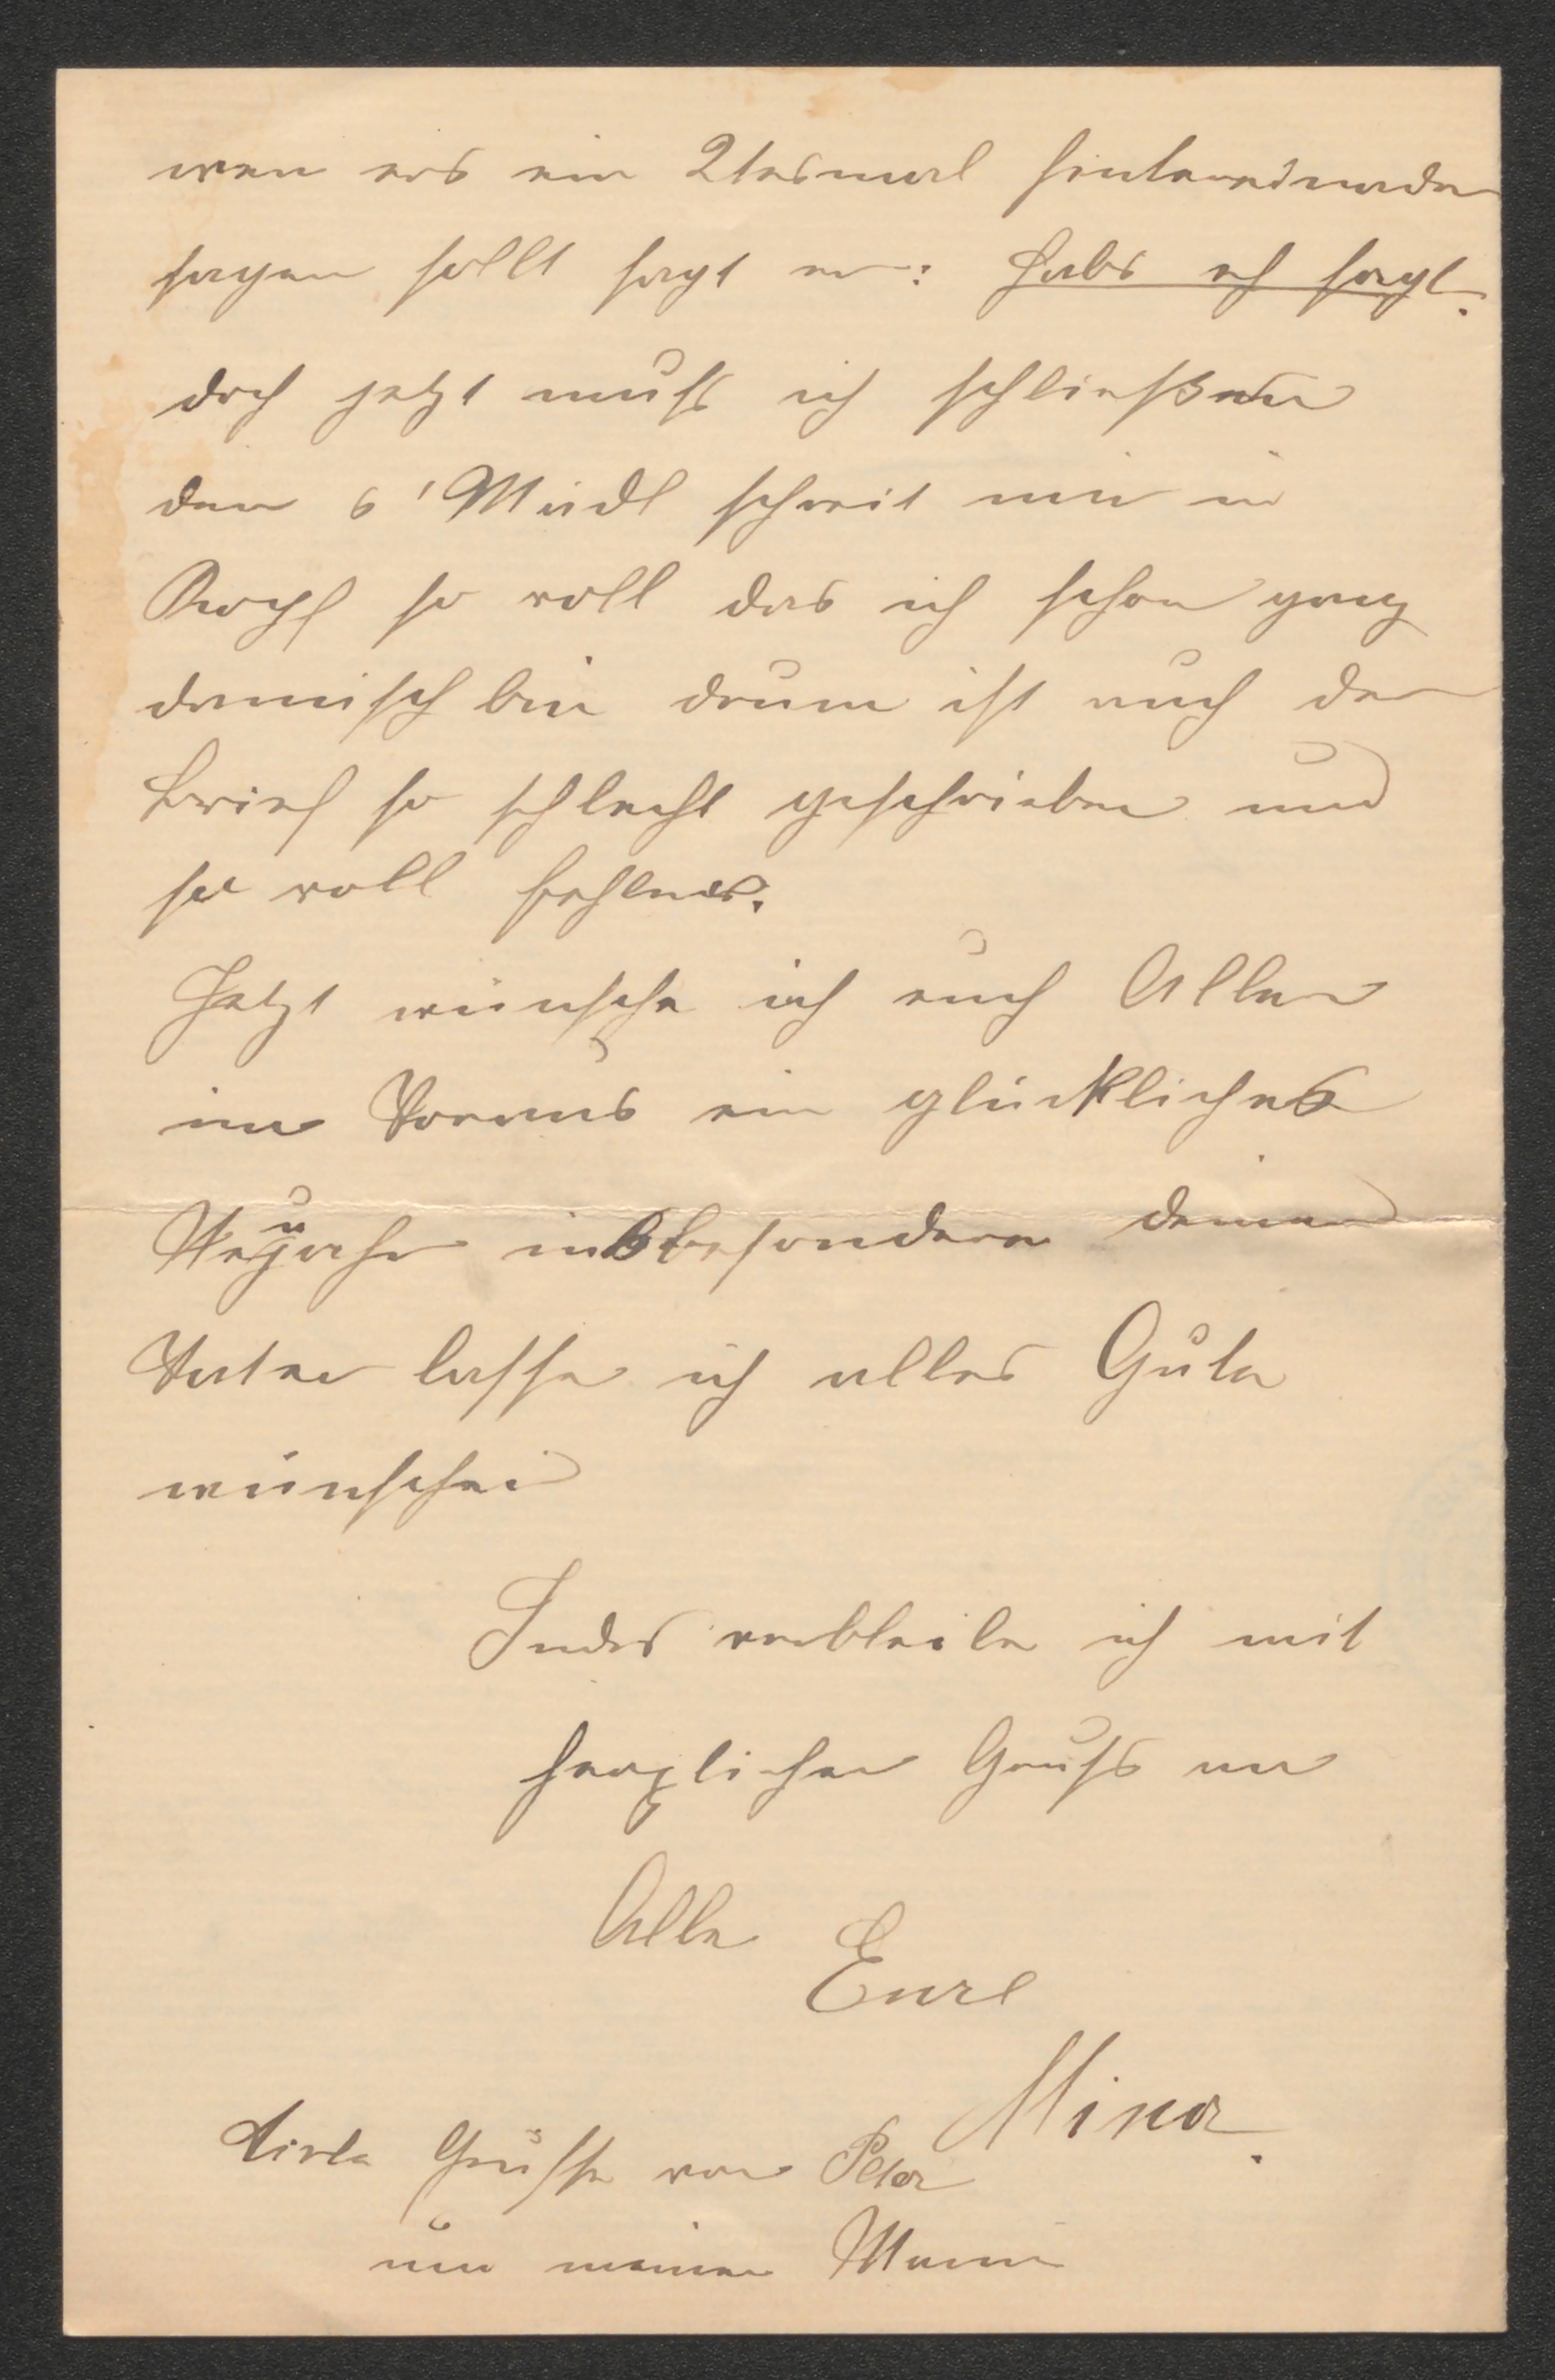 wen ers ein 2tesmal hintereinander
sagen sollt sagt er: habs eh sagt.
doch jetzt muß ich schließen
den s'Madl schreit mir in
Kopf so voll das ich schon ganz
damisch bin drum ist auch der
Brief so schlecht geschrieben und
so voll Fehler.
Jetzt wünsche ich euch Allen
im Voraus ein glückliches
Neujahr insbesondere deinen
Vater lasse ich alles Gute
wünschen
Indes verbleibe ich mit
herzlichen Gruß an
Alle
Eure
Mina.
Viele Grüsse von Peter
und meinen Mann